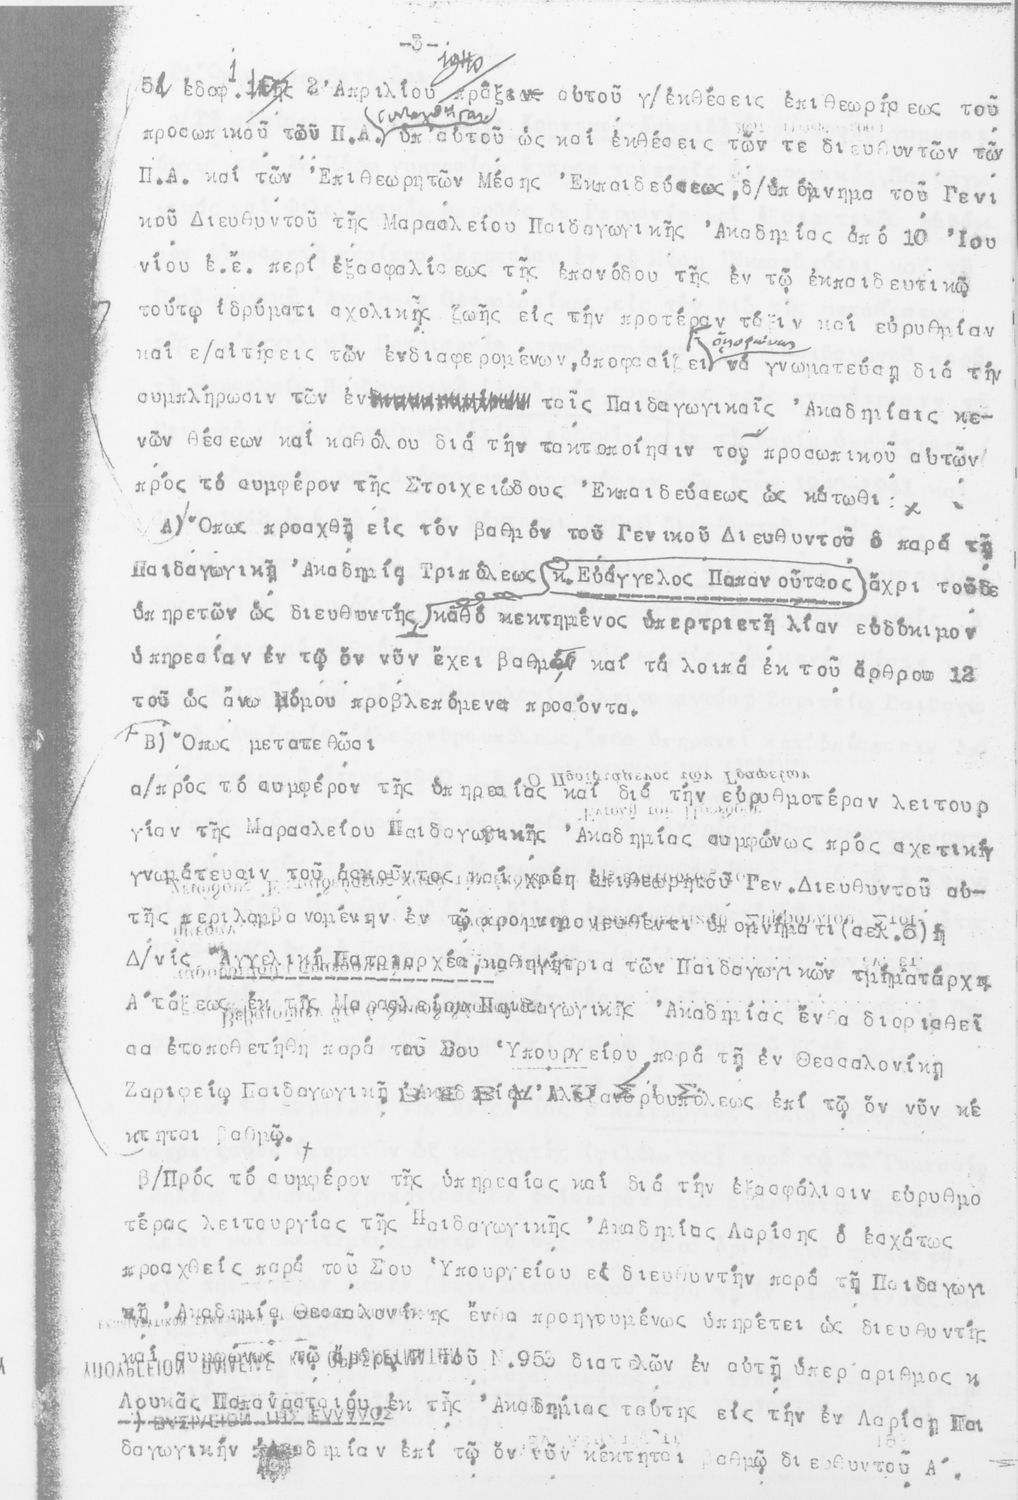 -3-
1940
5/ ἐδαφ. 1 τῆς 2 Ἀπριλίου πράξεως αὐτοῦ γ/ἐκθέσεις ἐπιθεωρήσεως τοῦ
προσωπικοῦ τῶν Π.Α. ὑπ'αὐτοῦ ὡς καί ἐκθέσεις τῶν τε διευθυντῶν τῶν
Π.Α. καί τῶν Ἐπιθεωρητῶν Μέσης Ἐκπαιδεύσεως, δ/ὑπόμνημα τοῦ Γενι
κοῦ Διευθυντοῦ τῆς Μαρασλείου Παιδαγωγικῆς Ἀκαδημίας ἀπό 10 Ἰου
νίου ἐ.ἔ. περί ἐξασφαλίσεως τῆς ἐπανόδου τῆς ἐν τῷ ἐκπαιδευτικῷ
τούτῳ ἱδρύματι σχολικῆς ζωῆς εἰς τήν προτέραν τάξιν καί εὐρυθμίαν
ὁμοφώνως
καί ε/αἰτήσεις τῶν ἐνδιαφερομένων, ἀποφασίζει νά γνωματεύσῃ διά τήν
συμπλήρωσιν τῶν ἐν ταῖς Παιδαγωγικαῖς Ἀκαδημίαις κε-
νῶν θέσεων καί καθόλου διά τήν τακτοποίησιν τοῦ προσωπικοῦ αὐτῶν
πρός τό συμφέρον τῆς Στοιχειώδους Ἐκπαιδεύσεως ὡς κάτωθι:
Α) Ὅπως προαχθῇ εἰς τόν βαθμόν τοῦ Γενικοῦ Διευθυντοῦ ὁ παρά τῇ
Παιδαγωγικῇ Ἀκαδημίᾳ Τριπόλεως κ. Εὐάγγελος Παπανοῦτσος ἄχρι τοῦδε
ὑπηρετῶν ὡς διευθυντής καθό κεκτημένος ὑπερτριετῆ λίαν εὐδόκιμον
ὑπηρεσίαν ἐν τῷ ὅν νῦν ἔχει βαθμῷ καί τά λοιπά ἐκ τοῦ ἄρθρου 12
τοῦ ὡς ἄνω Νόμου προβλεπόμενα προσόντα.
Β) Ὅπως μετατεθῶσι
α/πρός τό συμφέρον τῆς ὑπηρεσίας καί διά τήν εὐρυθμοτέραν λειτουρ
γίαν τῆς Μαρασλείου Παιδαγωγικῆς Ἀκαδημίας συμφώνως πρός σχετικήν
γνωμάτευσιν τοῦ ἀσκοῦντος καί χρέη ἐπιθεωρητοῦ Γεν.Διευθυντοῦ αὐ-
τῆς περιλαμβανομένην ἐν τῷ προμνημονευθέντι ὑπομνήματι(σελ.6) ἡ
Δ/νίς Ἀγγελική Πατριαρχέα, καθηγήτρια τῶν Παιδαγωγικῶν τμηματάρχης
Α΄τάξεως ἐκ τῆς Μαρασλείου Παιδαγωγικῆς Ἀκαδημίας ἔνθα διορισθεῖ
σα ἐτοποθετήθη παρά τοῦ Σου Ὑπουργείου παρά τῇ ἐν Θεσσαλονίκῃ
Ζαριφείῳ Παιδαγωγικῇ Ἀκαδημίᾳ Ἀλεξανδρουπόλεως ἐπί τῷ ὅν νῦν κέ
κτηται βαθμῷ.
β/Πρός τό συμφέρον τῆς ὑπηρεσίας καί διά τήν ἐξασφάλισιν εὐρυθμο
τέρας λειτουργίας τῆς Παιδαγωγικῆς Ἀκαδημίας Λαρίσης ὁ ἐσχάτως
προαχθείς παρά τοῦ Σου Ὑπουργείου εἰς διευθυντήν παρά τῇ Παιδαγωγι
κῇ Ἀκαδημίᾳ Θεσσαλονίκης ἔνθα προηγουμένως ὑπηρέτει ὡς διευθυντής
καί συμφώνως τῷ ἄρθρῳ τοῦ Ν.953 διατελῶν ἐν αὐτῇ ὑπεράριθμος κ
Λουκᾶς Παπαναστασίου, ἐκ τῆς Ἀκαδημίας ταύτης εἰς τήν ἐν Λαρίσῃ Παι
δαγωγικήν Ἀκαδημίαν ἐπί τῷ ὅν νῦν κέκτηται βαθμῷ διευθυντοῦ Α΄.